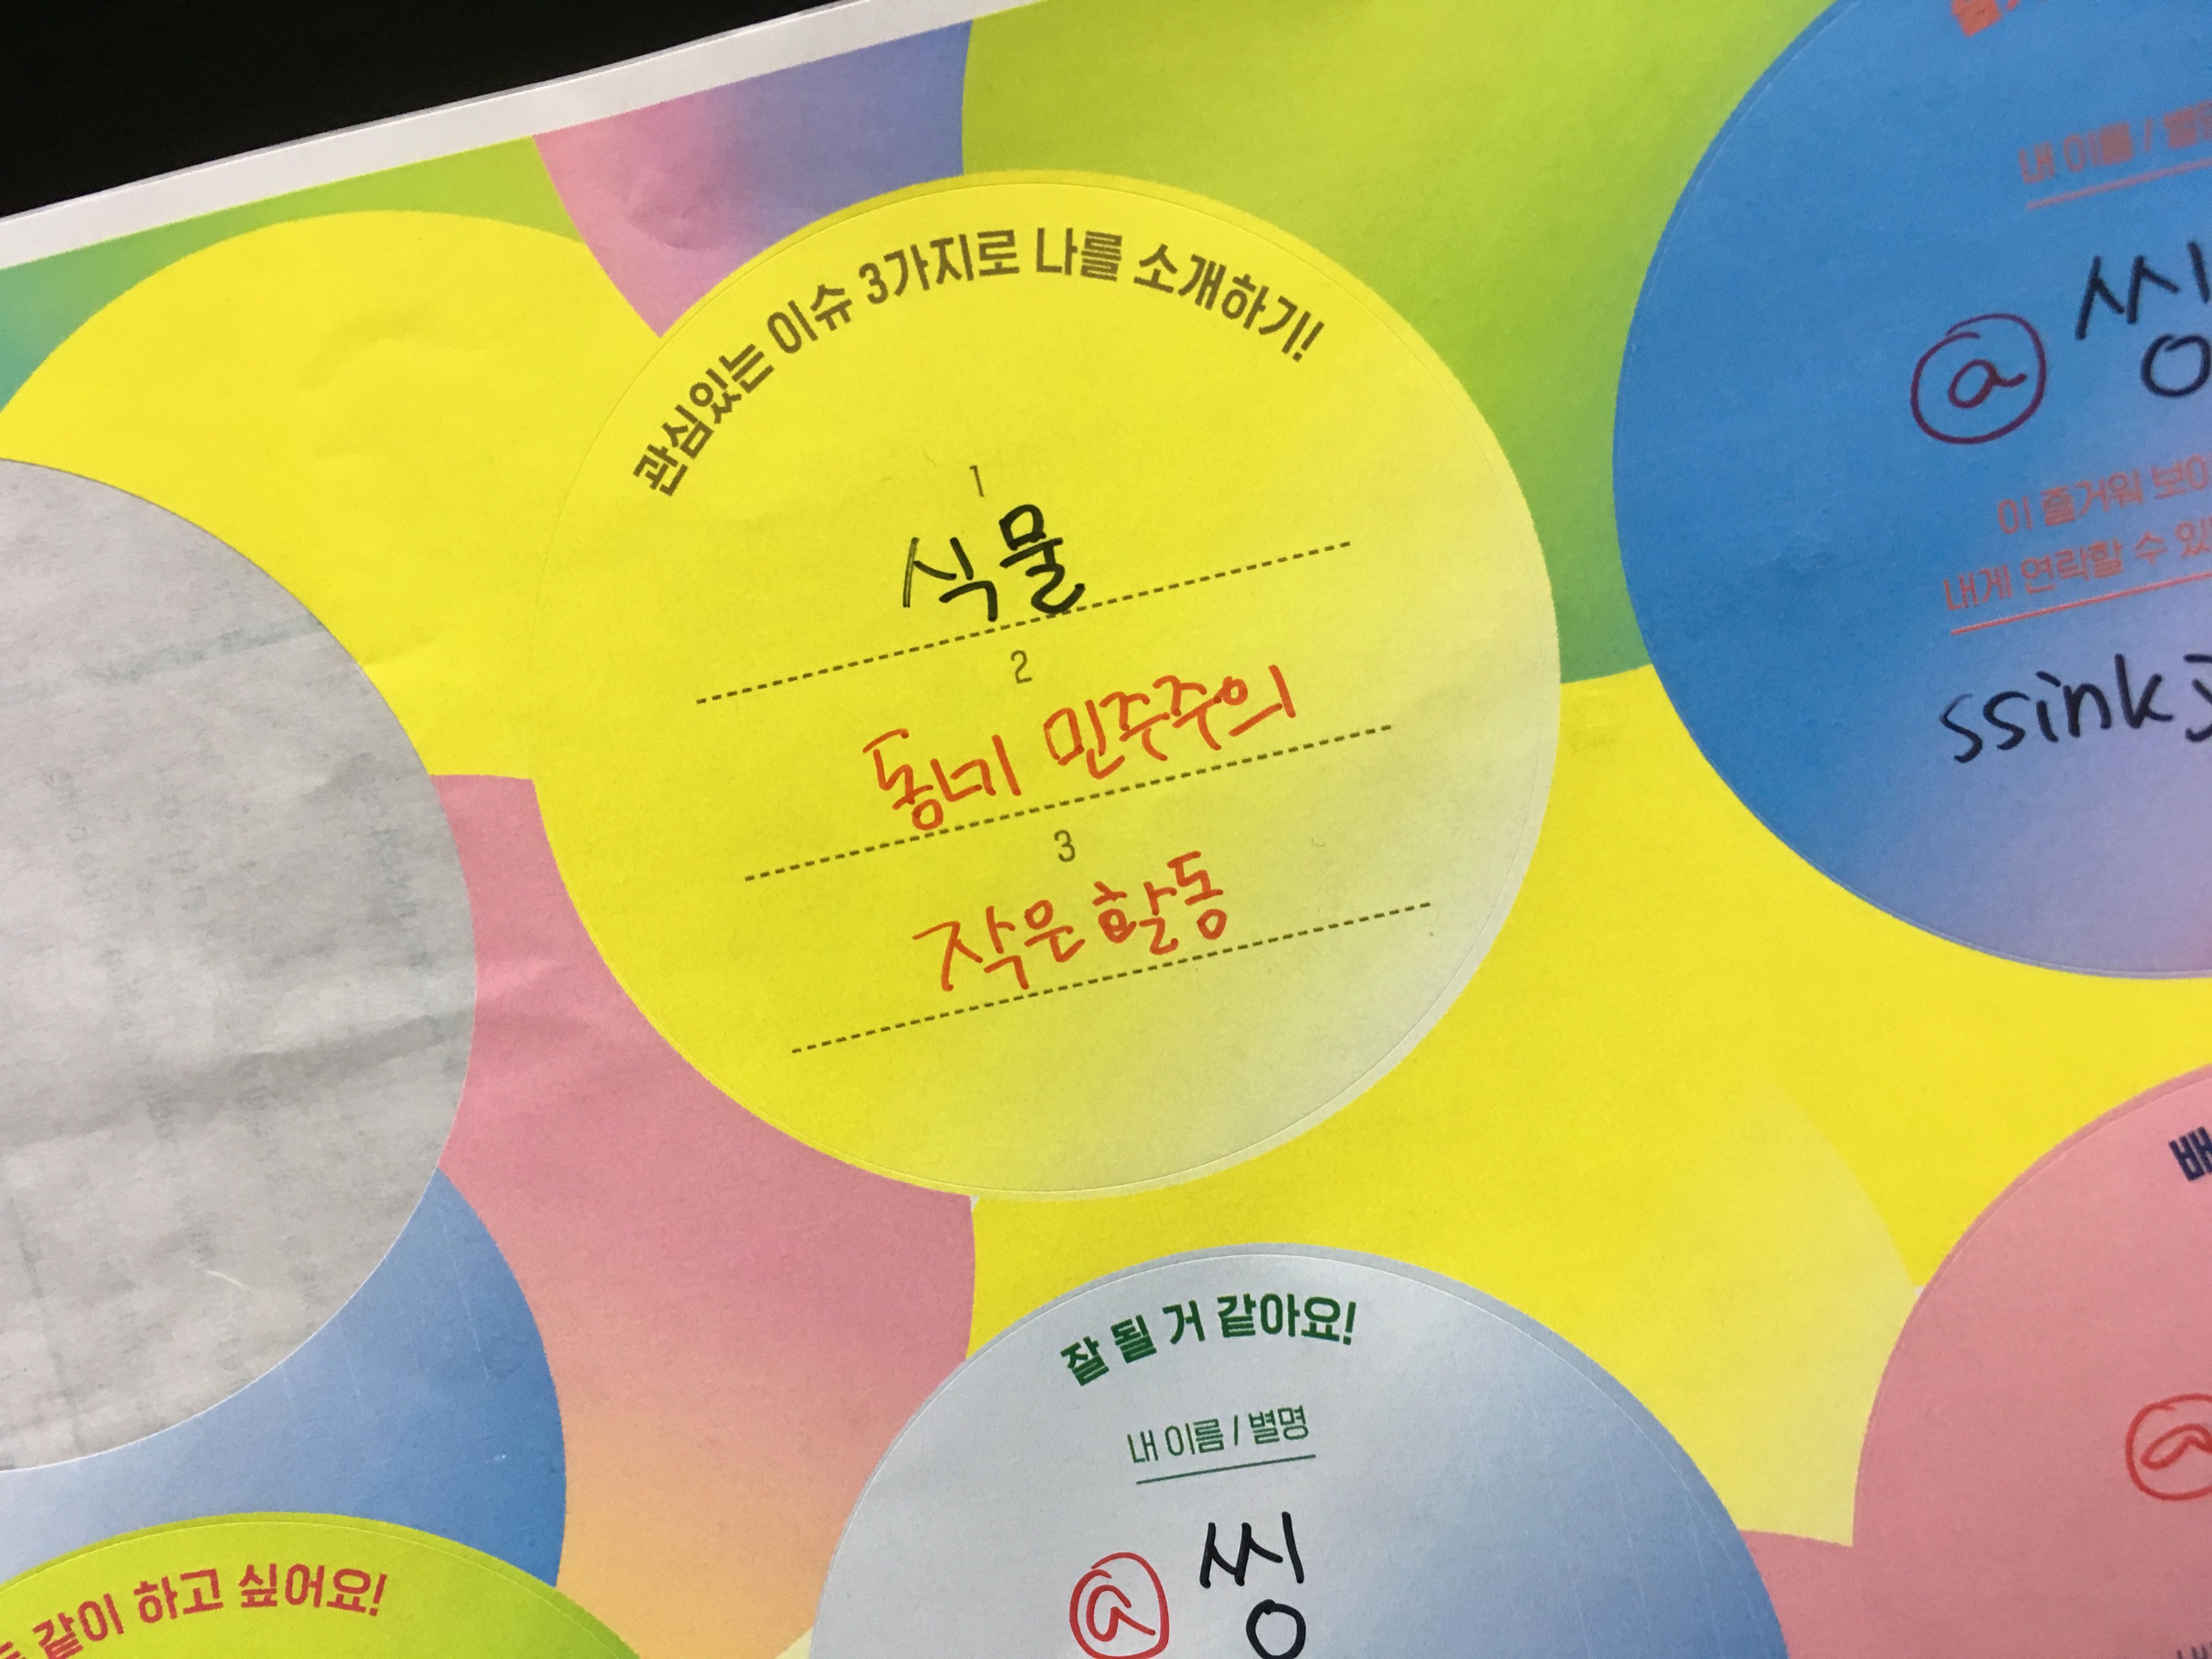 관심있는 이슈 3가지로 나를 소개하기!
1
식물
2
동네 민주주의
3
작은 활동
내 이름 /
@ 씽
이 즐거워
내게 연락할 수
잘 될 거 같아요!
내 이름 / 별명
@ 씽
같이 하고 싶어요!